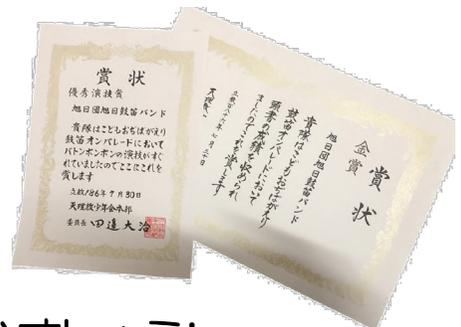 賞状
優秀演技賞
旭日団旭日鼓笛バンド
貴隊はこどもおぢばがえり
鼓笛オンパレードにおいて
バトンポンポンの演技がすぐ
れていましたのでここにこれを
賞します
立教186年7月30日
天理教少年会本部
委員長 田邊大治
賞状
金賞
旭日団旭日鼓笛バンド
貴隊はこどもおぢばがえり
鼓笛オンパレードにおいて
頭書の成績を収められ
ましたのでこれを賞します
立教百八十六年七月三十日